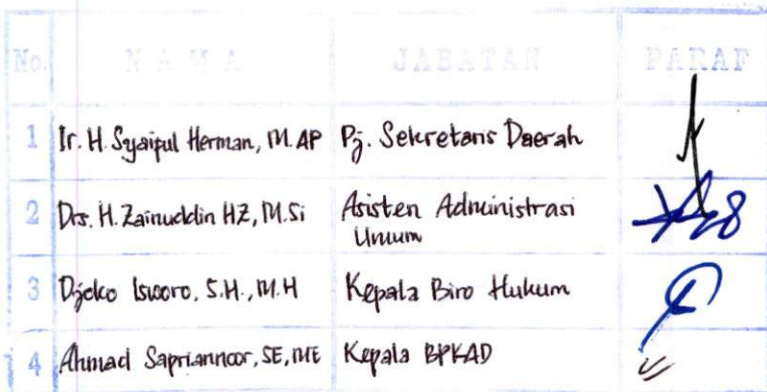 No. N A M A JABATAN PARAF
1 Ir. H. Syaiful Herman, M.AP Pj. Sekretaris Daerah
2 Drs. H. Zainuddin HZ, M.Si Asisten Administrasi
Umum
3 Djoko Isworo, S.H., M.H Kepala Biro Hukum
4 Ahmad Sapriannoor, SE, ME Kepala BPKAD